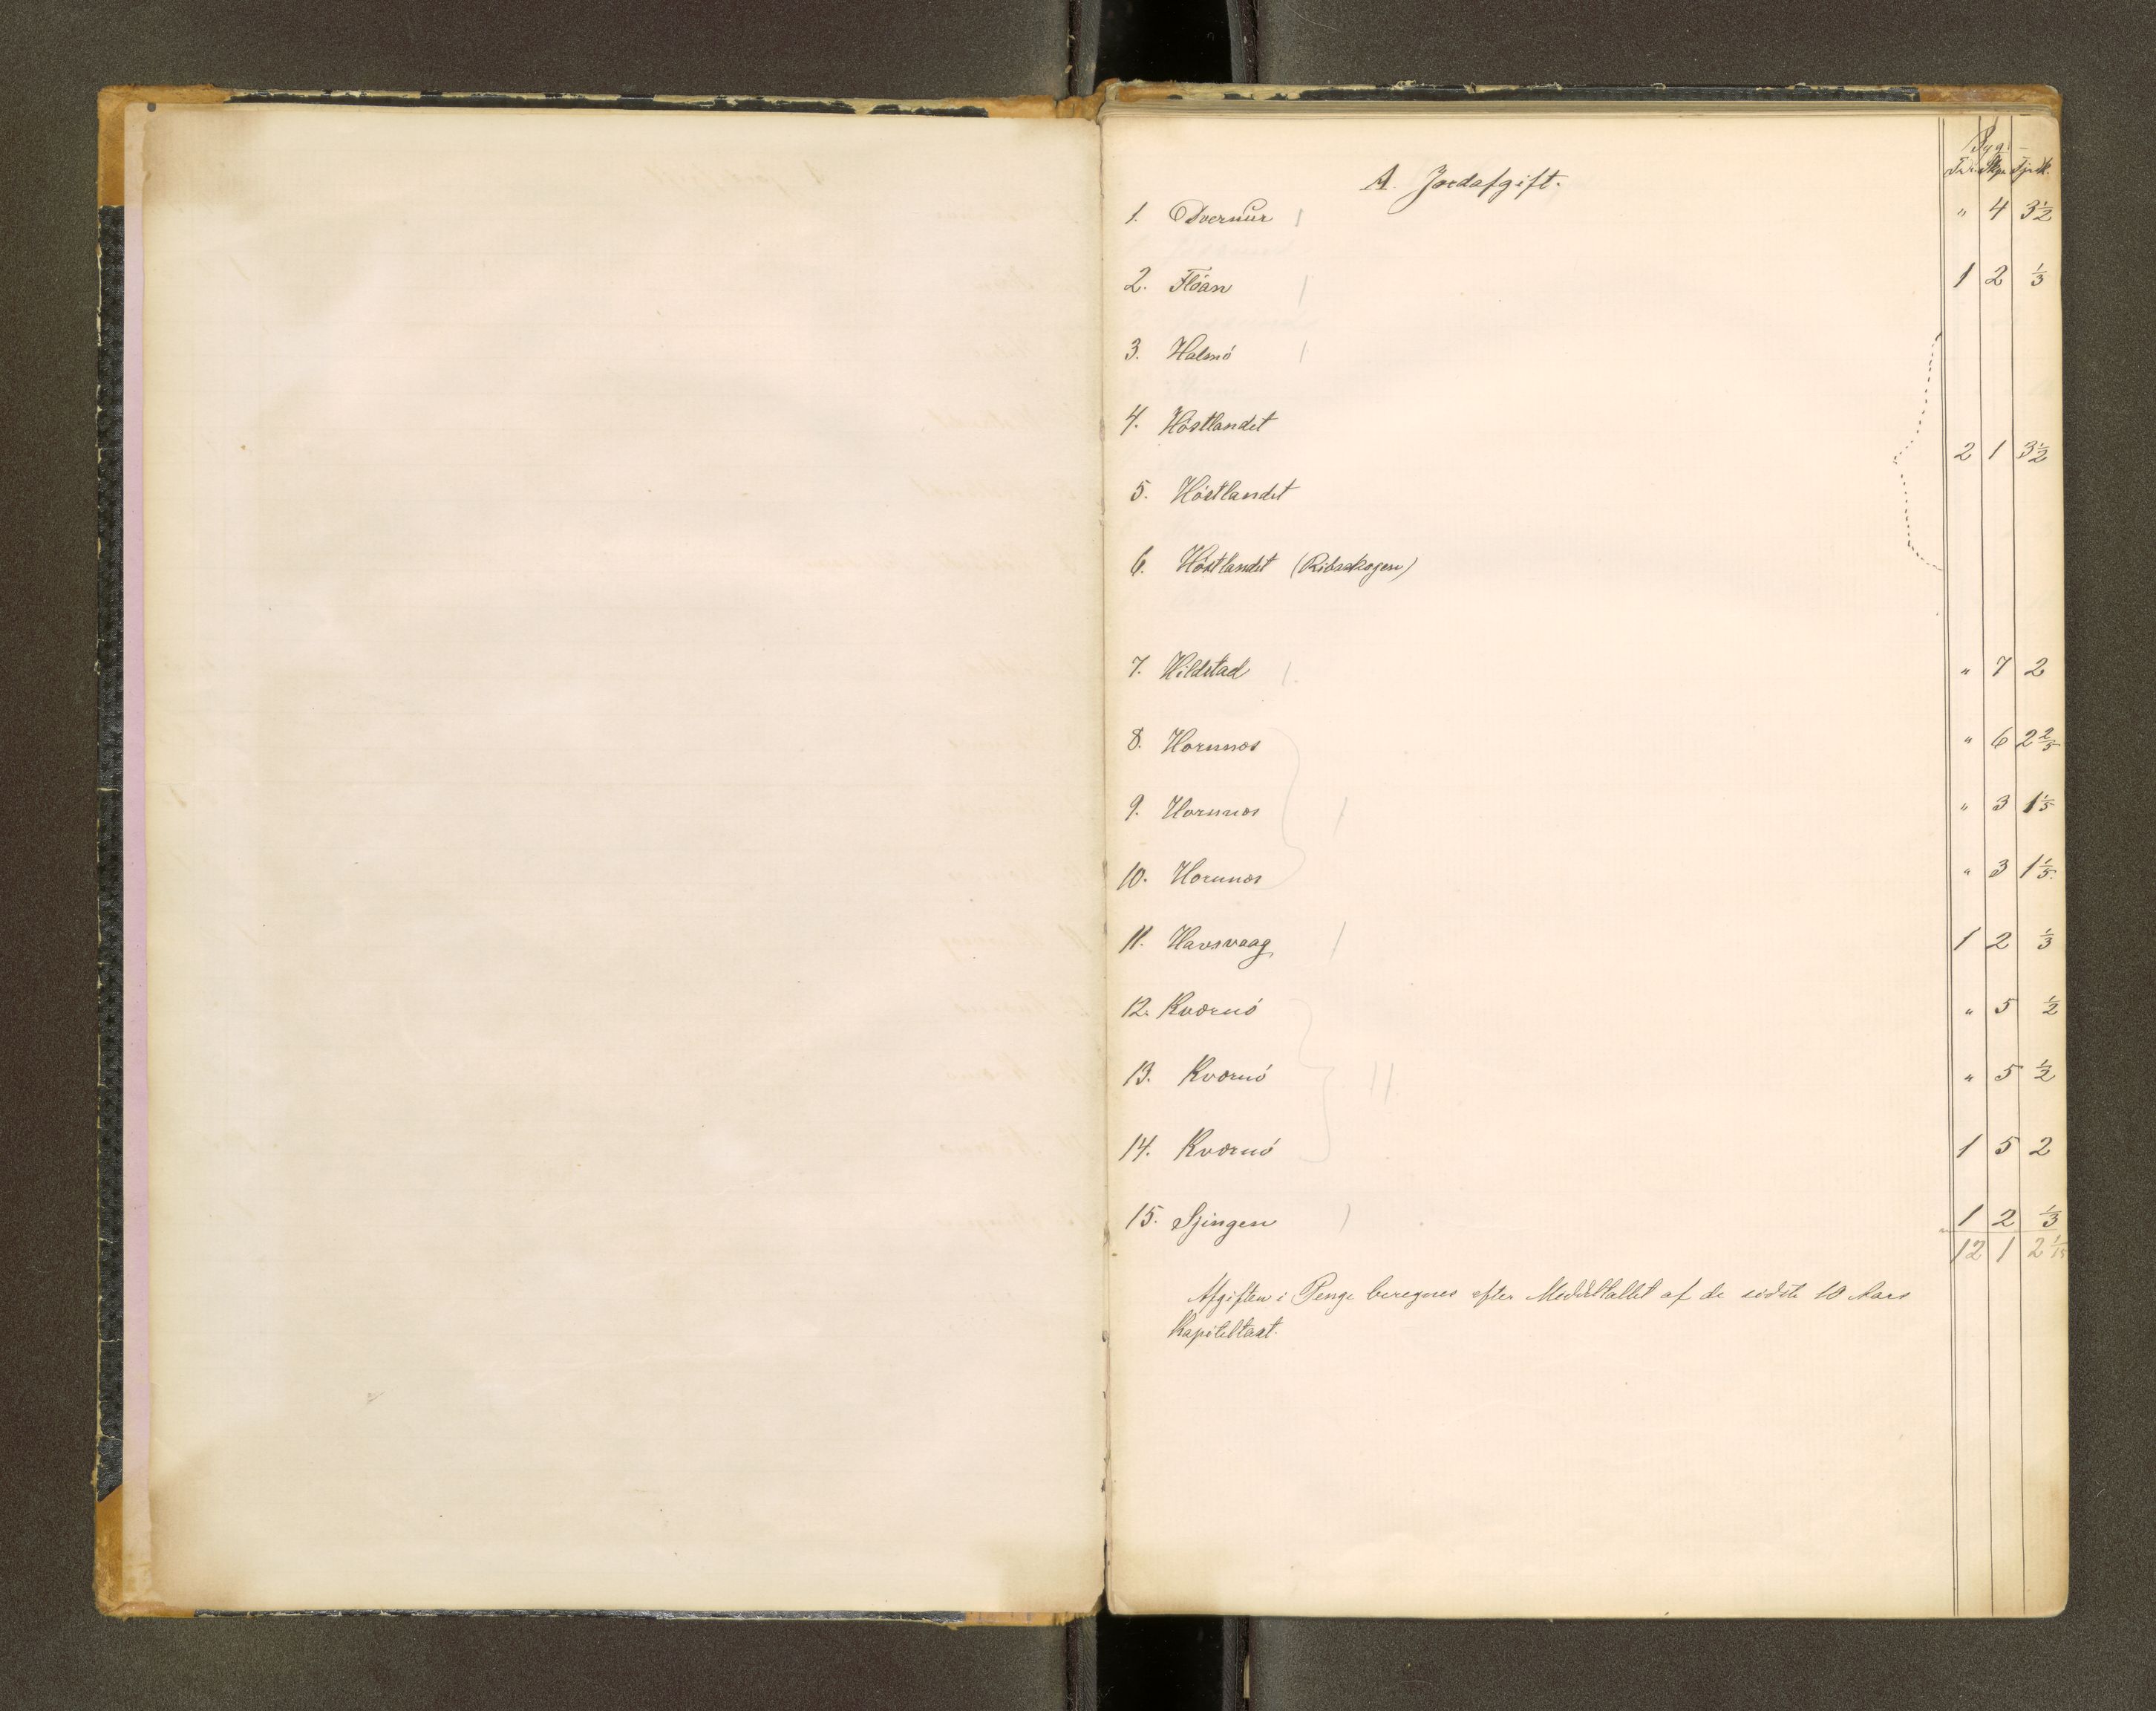 Byg.
A. Jordafgift. Tdr. Skp. Fjrdk.
1. Dvernur " 4 3½
2. Flöan 1 2 ⅓
3. Halmö
4. Höstlandet
2 1 3½
5. Höstlandet
6. Höstlandet (Ribsskogen)
7. Hildstad " 7 2
8. Hornnæs " 6 2⅖
9. Hornnæs " 3 1⅕
10. Hornnæs " 3 1⅕
11. Havsvaag 1 2 ⅓
12. Kværnö " 5 ½
13. Kværnö " 5 ½
14. Kværnö 1 5 2
15. Sjingen 1 2 ⅓
12 1 2 1/15
Afgiften i Penge beregnes efter Middeltallet af de sidste 10 Aars
Kapiteltaxt.